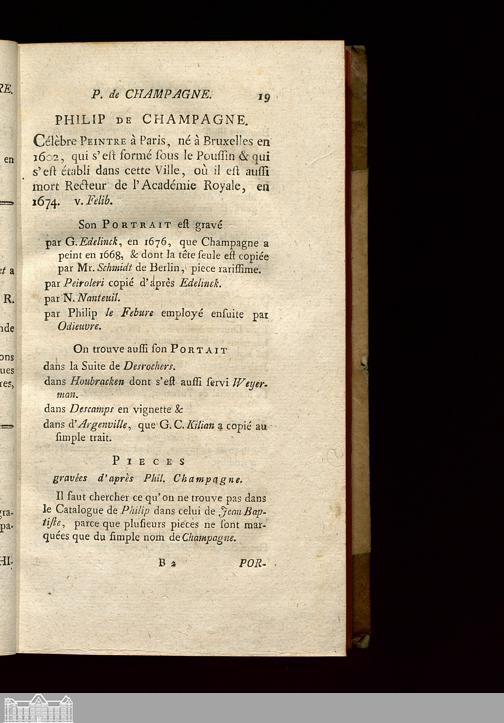 P. de CHAMPAGNE. 19
PHILIP DE CHAMPAGNE.
Célèbre PEINTRE à Paris, né à Bruxelles en
1602, qui s'eſt formé ſous le Pouſſin & qui
s'eſt établi dans cette Ville, où il eſt auſſi
mort Recteur de l'Académie Royale, en
1674. v. Felib.
Son PORTRAIT eſt gravé
par G. Edelinck, en 1676, que Champagne a
peint en 1668, & dont la tête ſeule eſt copiée
par Mr. Schmidt de Berlin, piece rariſſime.
par Peiroleri copié d'après Edelinck.
par N. Nanteuil.
par Philip le Febure employé enſuite par
Odieuvre.
On trouve auſſi ſon PORTAIT
dans la Suite de Desrochers.
dans Houbracken dont s'eſt auſſi ſervi Weyer-
man.
dans Descamps en vignette &
dans d'Argenville, que G. C. Kilian a copié au
ſimple trait.
PIECES
gravées d'après Phil. Champagne.
Il faut chercher ce qu'on ne trouve pas dans
le Catalogue de Philip dans celui de Jean Bap-
tiſte, parce que pluſieurs pieces ne ſont mar-
quées que du ſimple nom de Champagne.
B 2 POR-